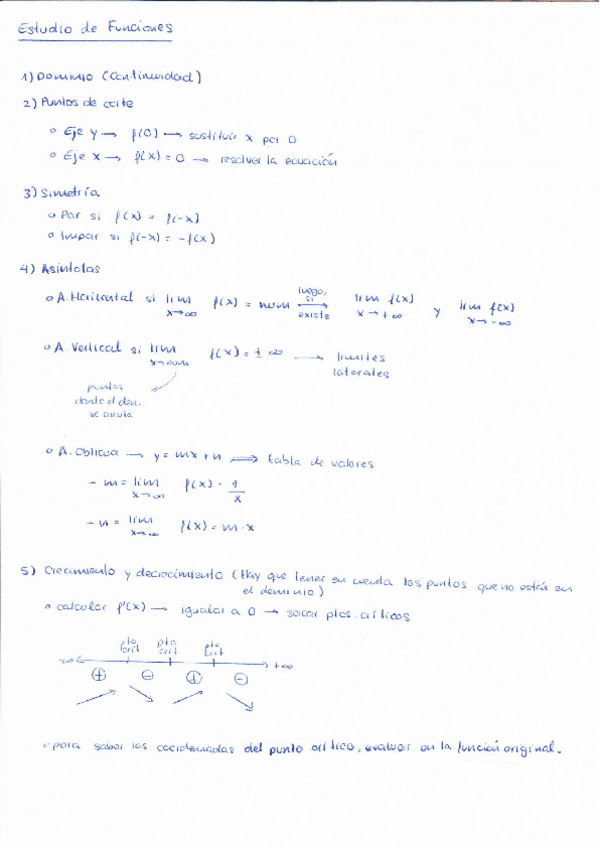 Estudio de Funciones
1) Dominio (Continuidad)
2) Puntos de corte
o Eje y → f(0) → sustituir x por 0
o Eje x → f(x) = 0 → resolver la ecuación
3) Simetría
o Par si f(x) = f(-x)
o Impar si f(-x) = -f(x)
4) Asíntotas
o A. Horizontal si lim x→∞ f(x) = num luego, si existe → lim f(x) x→+∞ y lim f(x) x→-∞
o A. Vertical si lim x→num f(x) = ±∞ → límites
laterales
puntos
donde el den.
se anula
o A. Oblicua → y = mx + n ⟹ tabla de valores
- m = lim x→∞ f(x) · 1/x
- n = lim x→∞ f(x) = m · x
5) Crecimiento y decrecimiento (Hay que tener en cuenta los puntos que no están en
el dominio)
o calcular f'(x) → igualar a 0 → sacar ptos. críticos
pto crit pto crit pto crit
-∞ +∞
+ - + -
o para saber las coordenadas del punto crítico, evaluar en la función original.